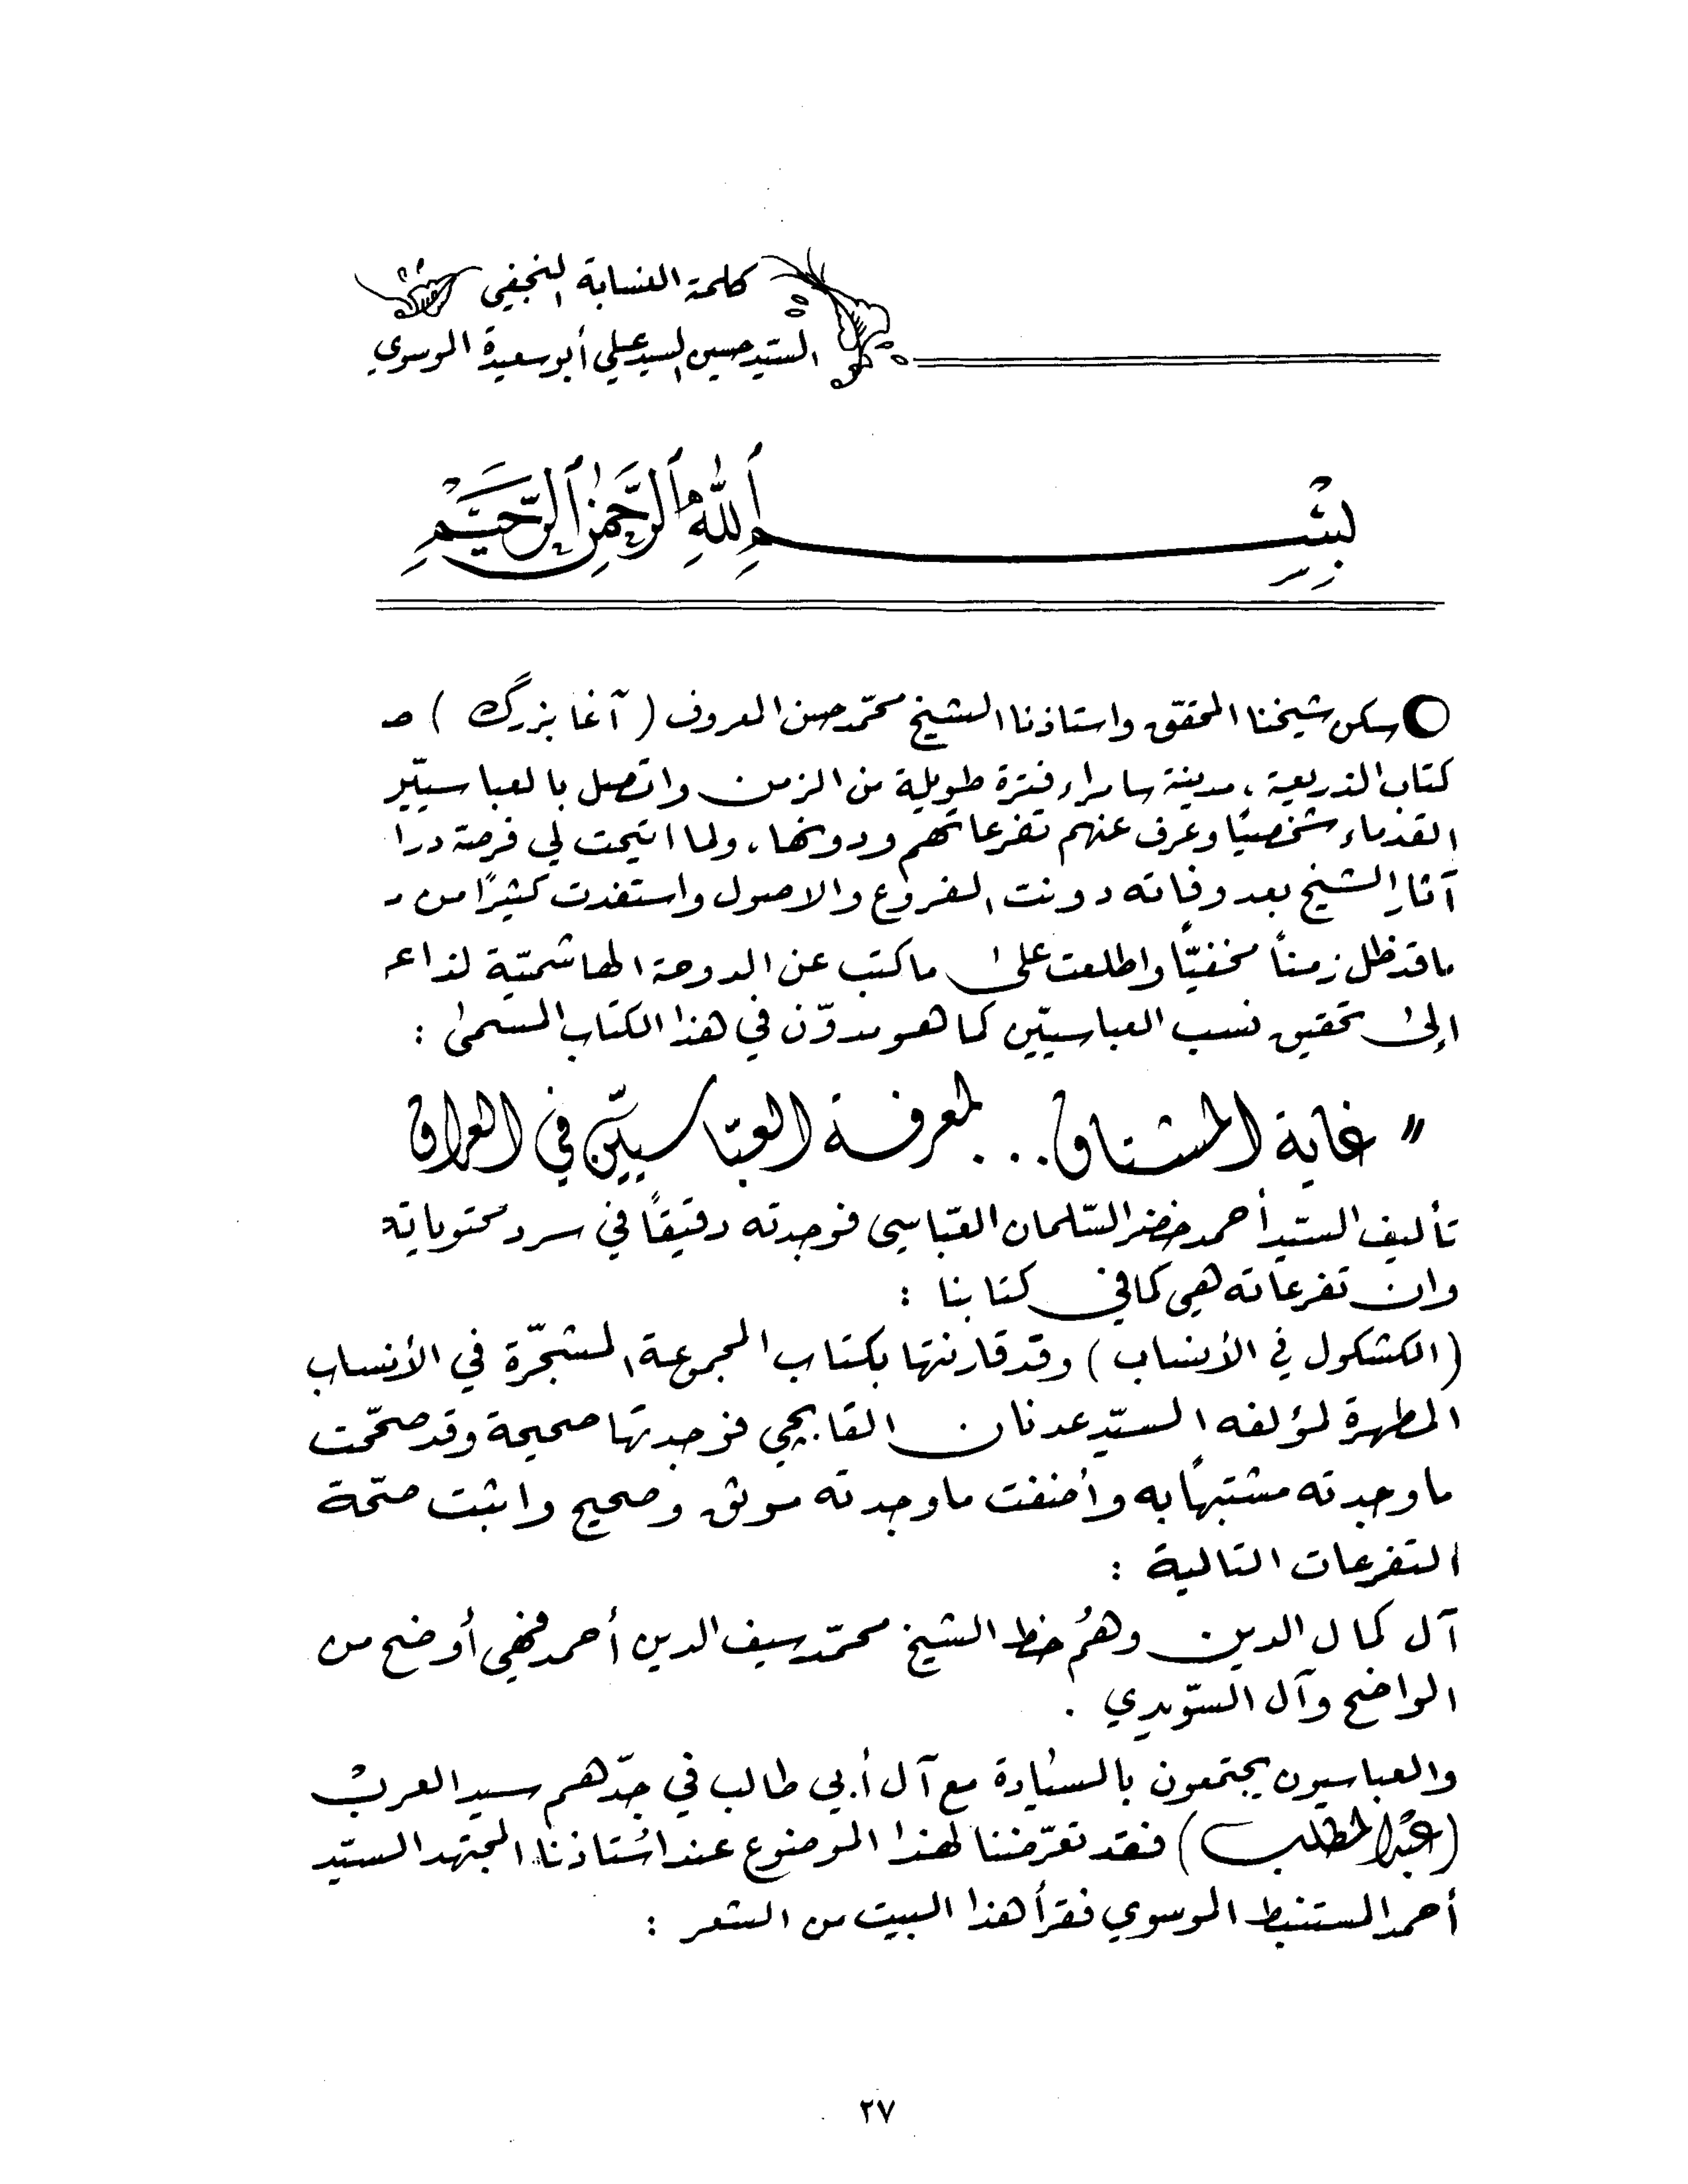 كلمة النسابة النجفي
السيد حسين السيد علي أبو سعيدة الموسوي
بِسْمِ اللَّهِ الرَّحْمَٰنِ الرَّحِيمِ
سكن شيخنا المحقق واستاذنا الشيخ محمّد حسن المعروف (آغا بزرگ) صـ
كتاب الذريعة، مدينة سامراء فترة طويلة من الزمن واتصل بالعباسيّيـ
القدماء شخصيًا وعرف عنهم تفرعاتهم ودونها، ولما اتيحت لي فرصة درا
آثار الشيخ بعد وفاته دونت الفروع والاصول واستفدت كثيرًا من
ما قد ظل زمناً مخفيًّا واطلعت على ما كتب عن الدوحة الهاشميّة لذا عـ
إلى تحقيق نسب العباسيّين كما هو مدوّن في هذا الكتاب المسمى :
" غاية المشتاق... لمعرفة العبّاسيّين في العراق
تأليف السيد أحمد خضر السّلمان العبّاسي فوجدته دقيقاً في سرد محتوياته
وان تفرعاته هي كما في كتابنا :
(الكشكول في الأنساب) وقد قارنتها بكتاب المجموعة المشجّرة في الأنساب
المطهرة لمؤلفه السيّد عدنان القابچي فوجدتها صحيحة وقد صحّحت
ما وجدته مشتبهًا به وأضفت ما وجدته موثق وصحيح واثبت صحّة
التفرعات التالية :
آل كمال الدين وهُم خط الشيخ محمّد سيف الدين أحمد فهي أوضح من
الواضح وآل السّويدي .
والعباسيون يجتمعون بالسيّادة مع آل أبي طالب في جدّهم سيد العرب
(عبْد المطلب) فقد تعرّضنا لهذا الموضوع عند اسُتاذنا المجتهد السيّد
أحمد المستنبط الموسوي فقرأ هذا البيت من الشعر :
٢٧